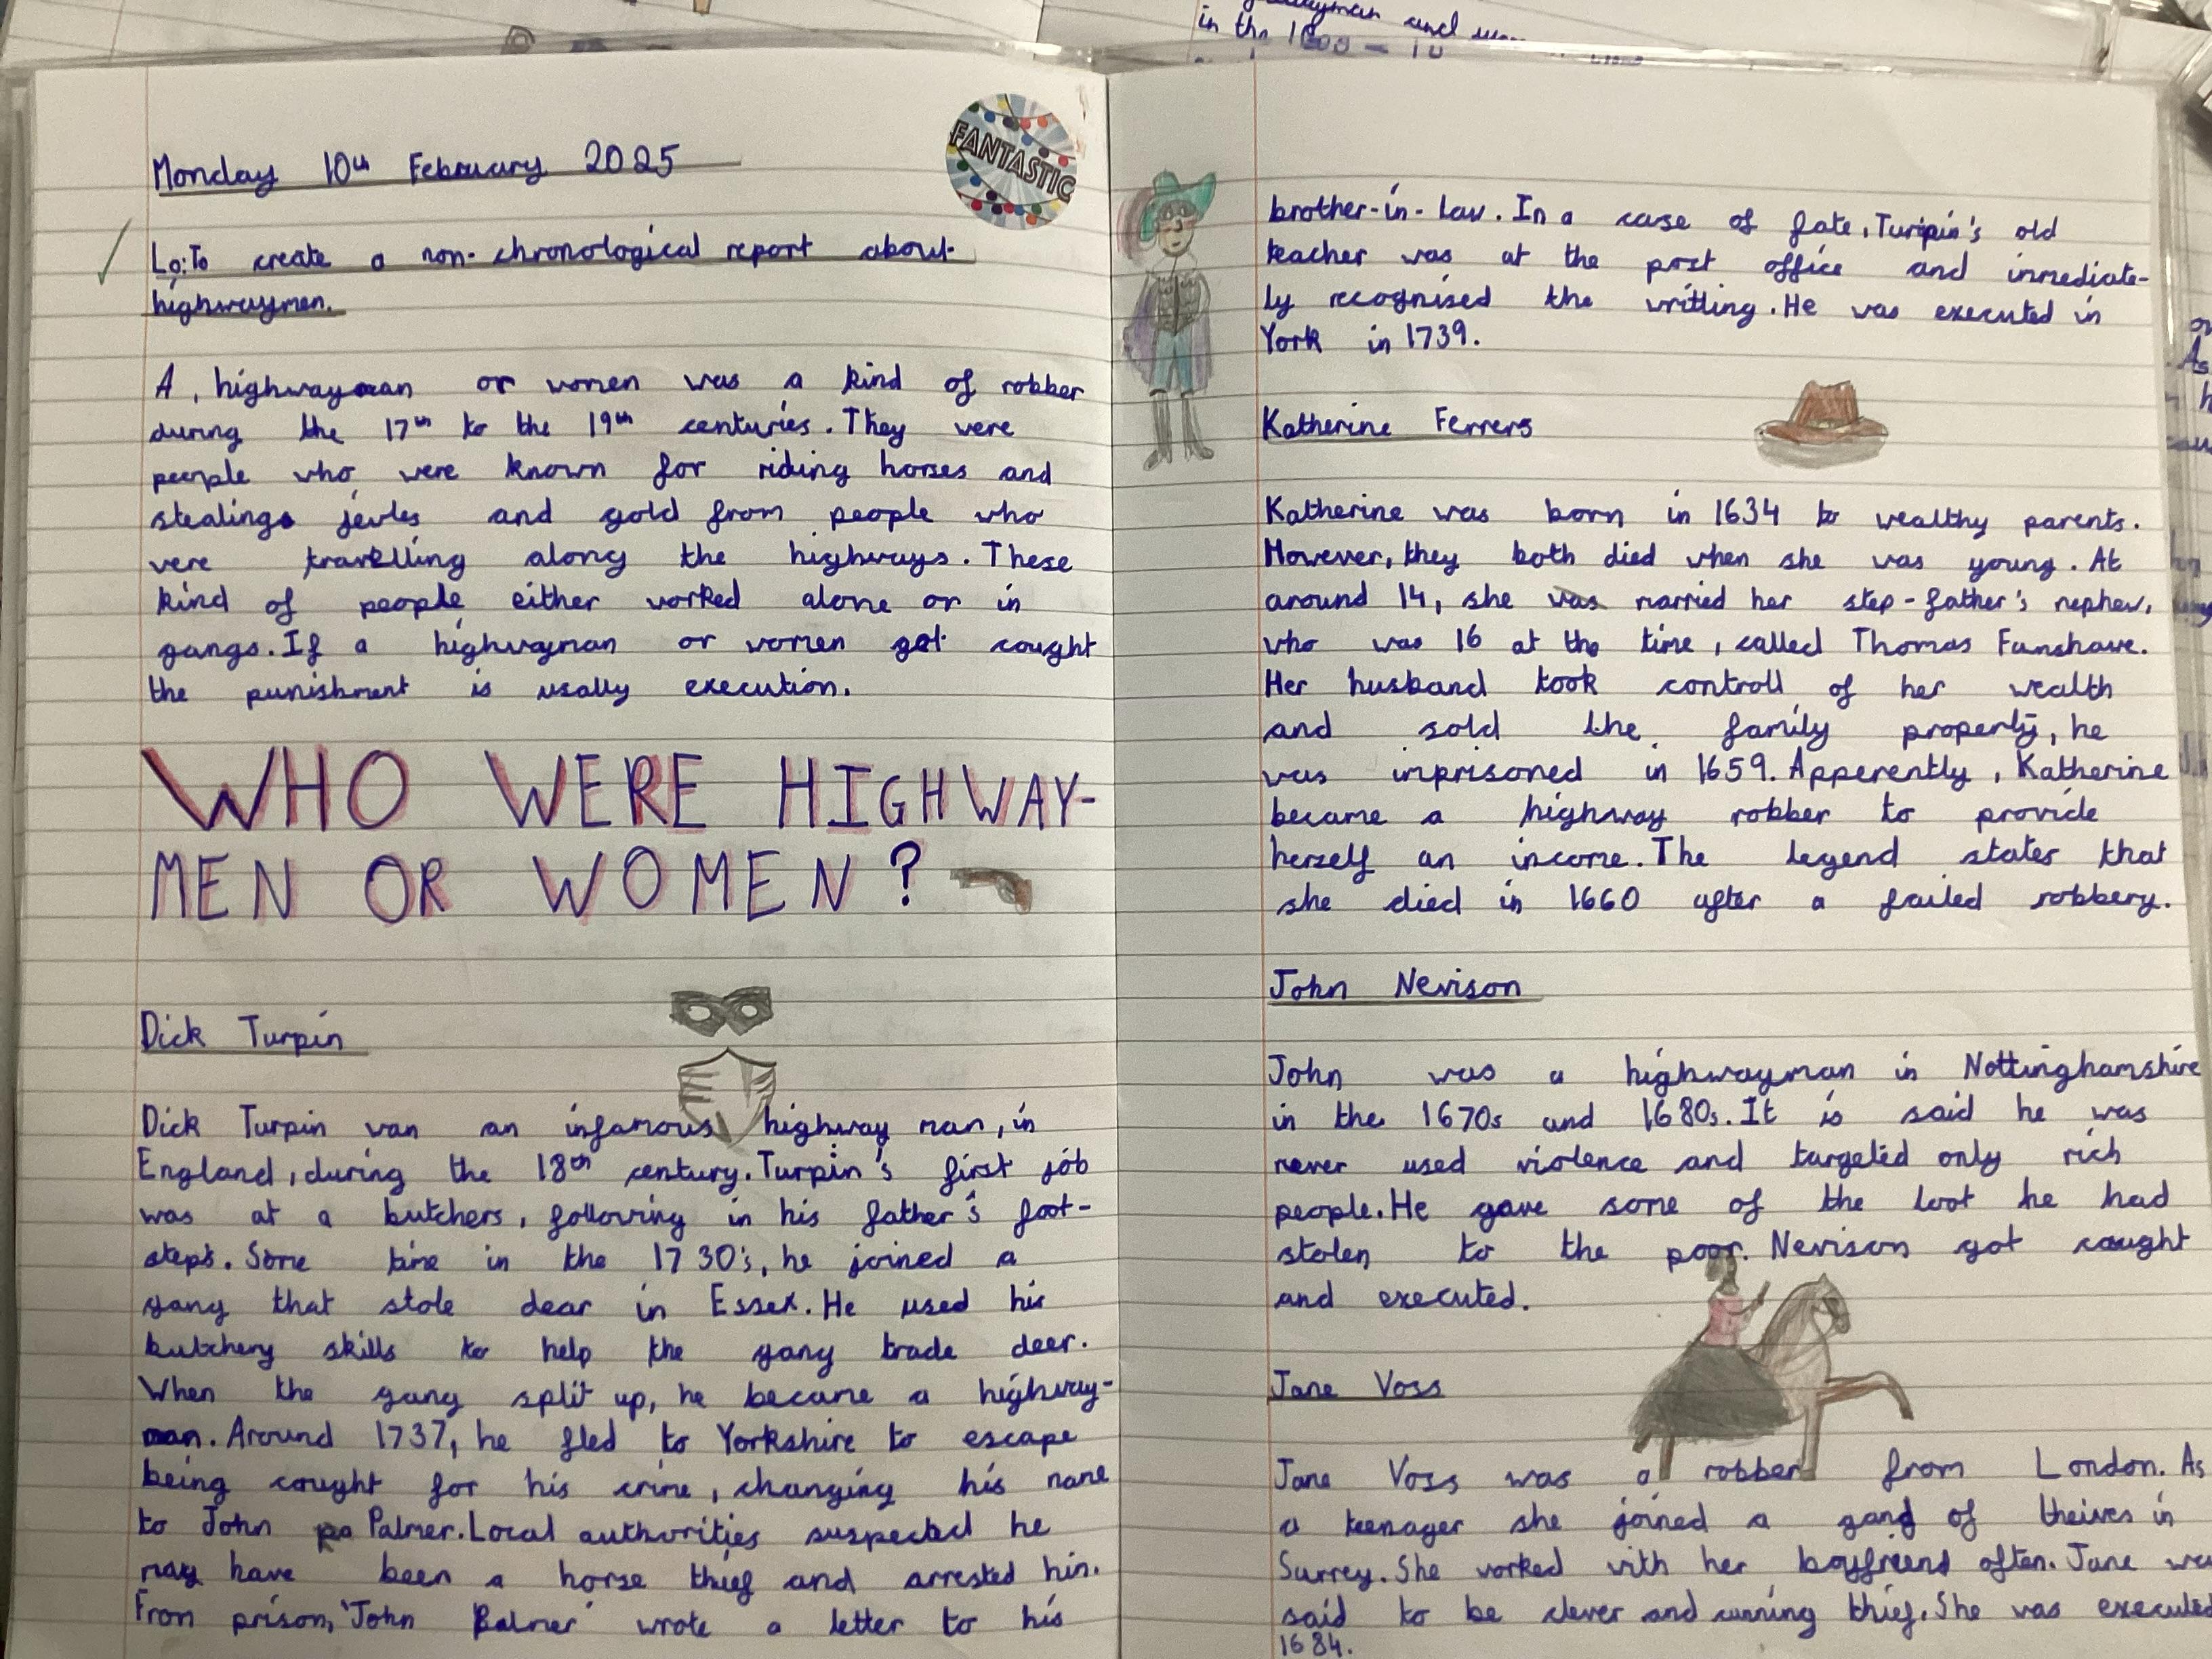 Monday 10th February 2025
FANTASTIC
Lo: To create a non-chronological report about
highwaymen.
A, highwayman or women was a kind of robber
during the 17th to the 19th centuries. They were
people who were known for riding horses and
stealing jewles and gold from people who
were travelling along the highways. These
kind of people either worked alone or in
gangs. If a highwayman or women got cought
the punishment is usally execution.
WHO WERE HIGHWAY-
MEN OR WOMEN?
Dick Turpin
Dick Turpin van an infamous highway man, in
England, during the 18th century. Turpin's first job
was at a butchers, following in his father's foot-
steps. Some time in the 1730's, he joined a
gang that stole dear in Essex. He used his
butchery skills to help the gang trade deer.
When the gang split up, he became a highway-
man. Around 1737, he fled to Yorkshire to escape
being cought for his crime, changing his name
to John Palmer. Local authorities suspected he
may have been a horse thief and arrested him.
From prison, 'John Palmer' wrote a letter to his
brother-in-law. In a case of fate, Turpin's old
teacher was at the post office and immediate-
ly recognised the writting. He was executed in
York in 1739.
Katherine Ferrers
Katherine was born in 1634 to wealthy parents.
However, they both died when she was young. At
around 14, she was married her step-father's nephew,
who was 16 at the time, called Thomas Funshawe.
Her husband took controll of her wealth
and sold the family property, he
was imprisoned in 1659. Apperently, Katherine
became a highway robber to provide
herself an income. The legend states that
she died in 1660 after a failed robbery.
John Nevison
John was a highwayman in Nottinghamshire
in the 1670s and 1680s. It is said he was
never used violence and targeted only rich
people. He gave some of the loot he had
stolen to the poor. Nevison got caught
and executed.
Jane Voss
Jane Voss was a robber from London. As
a teenager she joined a gang of theives in
Surrey. She worked with her boyfriend often. Jane was
said to be clever and cunning thief. She was executed
1684.